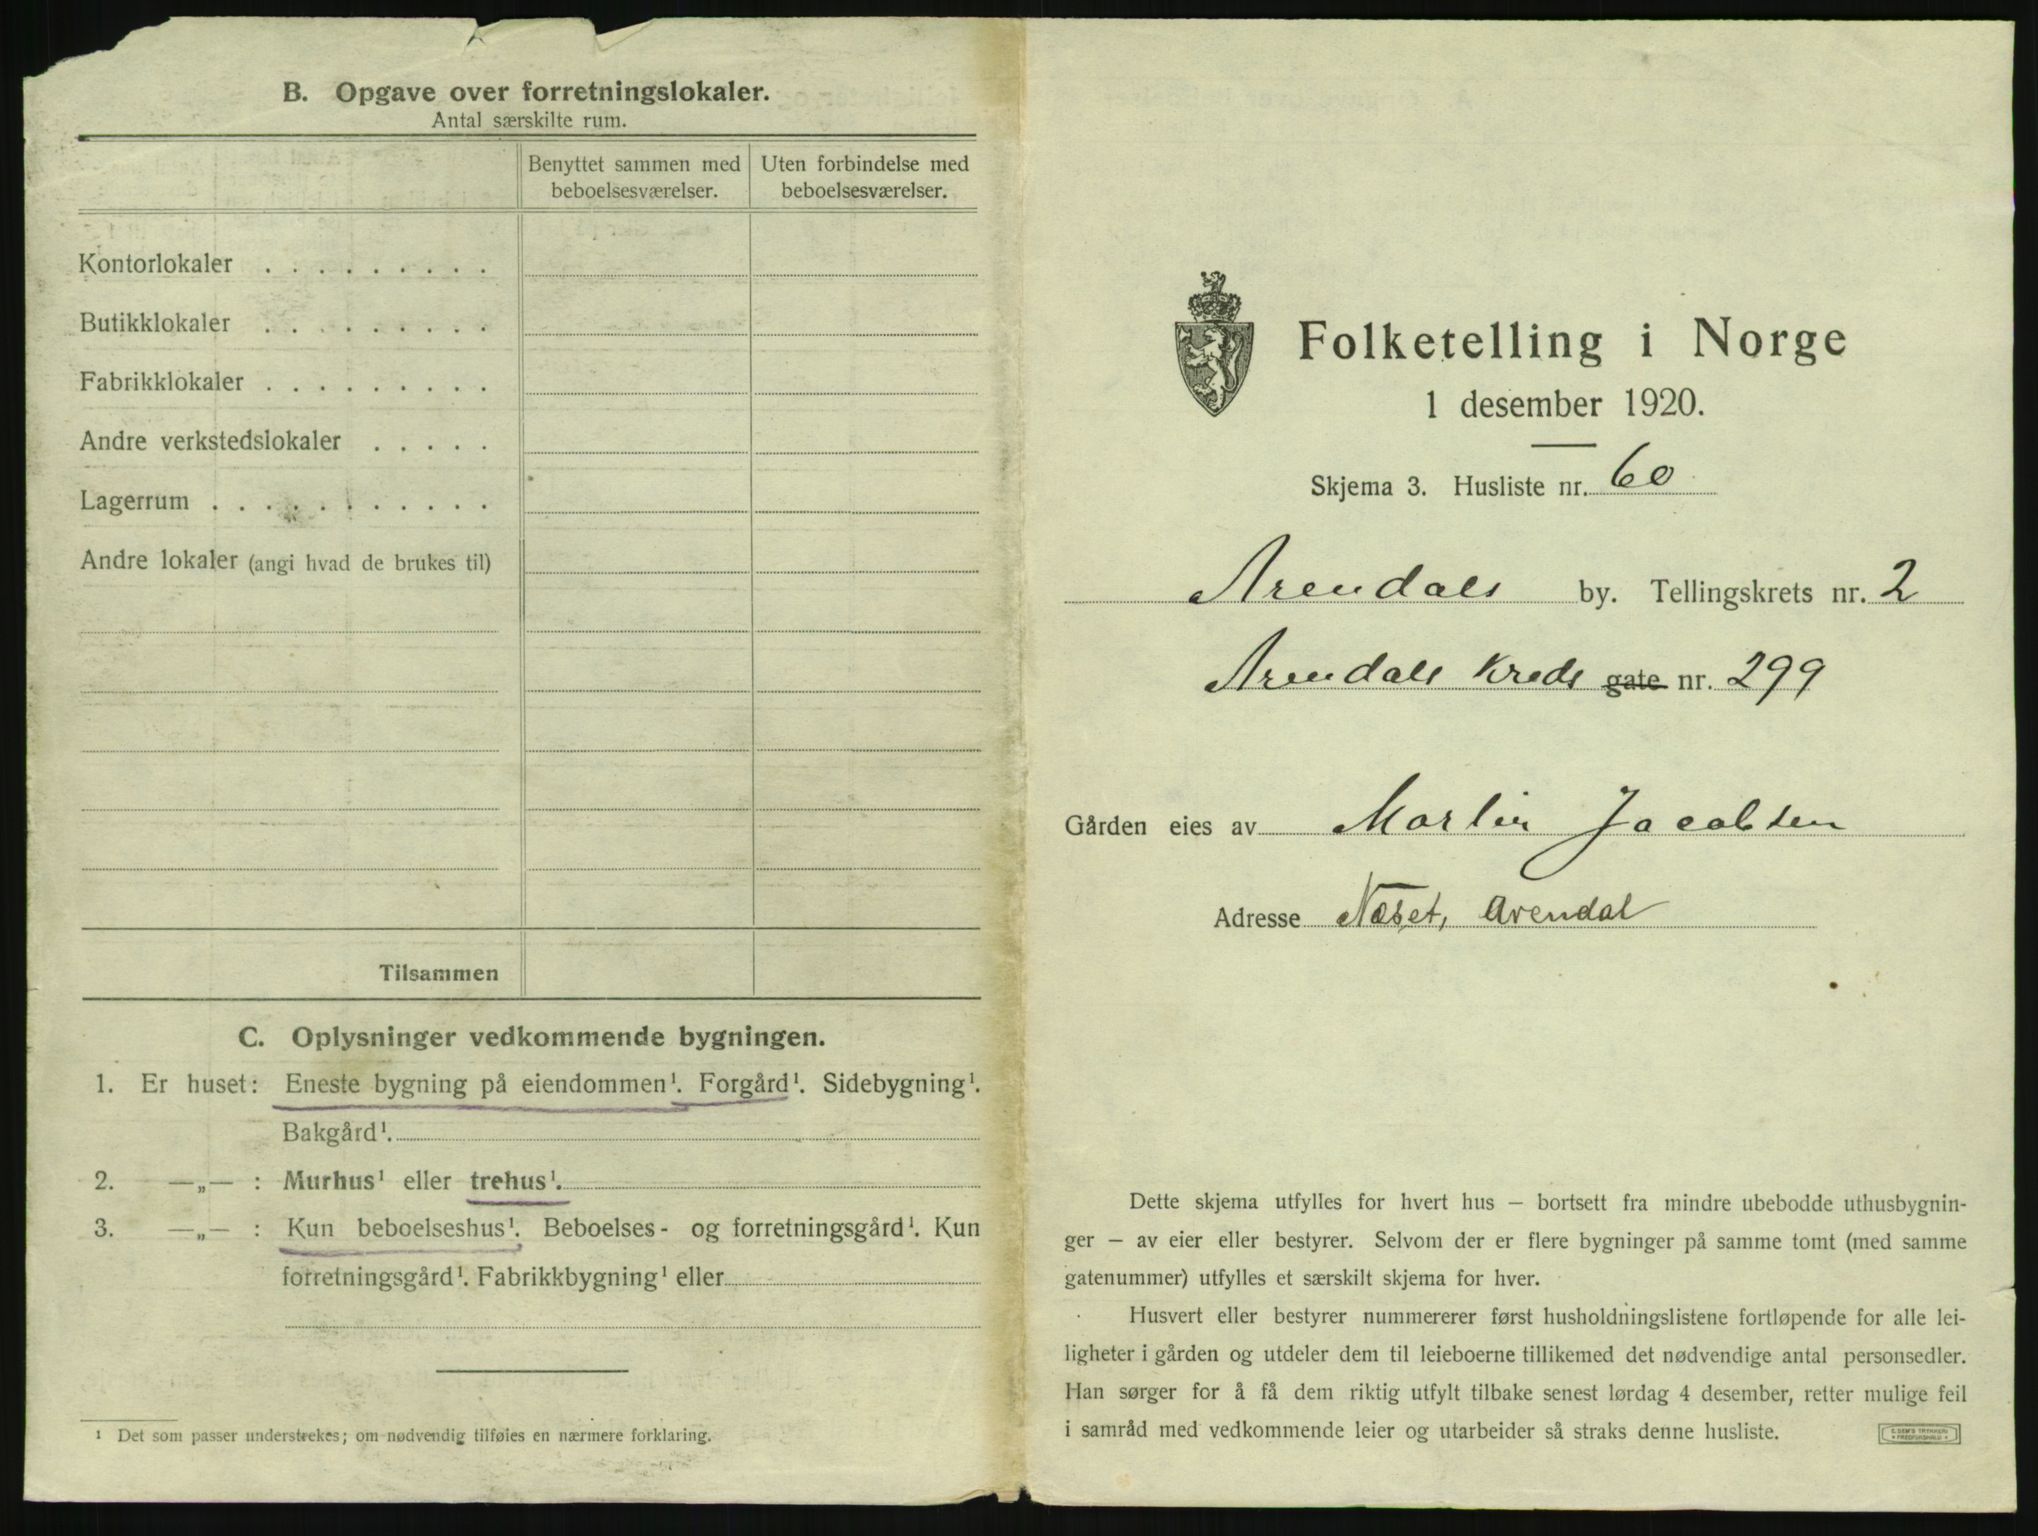 B. Opgave over forretningslokaler.
Antal særskilte rum.
Benyttet sammen med beboelsesværelser.
Uten forbindelse med beboelsesværelser.
Kontorlokaler . . . . . . . . .
Butikklokaler . . . . . . . . .
Fabrikklokaler . . . . . . . . .
Andre verkstedslokaler . . . . .
Lagerrum . . . . . . . . . . .
Andre lokaler (angi hvad de brukes til)
Tilsammen
C. Oplysninger vedkommende bygningen.
1. Er huset: Eneste bygning på eiendommen¹. Forgård¹. Sidebygning¹.
Bakgård¹.
2. —„— : Murhus¹ eller trehus¹.
3. —„— : Kun beboelseshus¹. Beboelses- og forretningsgård¹. Kun
forretningsgård¹. Fabrikkbygning¹ eller
¹ Det som passer understrekes; om nødvendig tilføies en nærmere forklaring.
Folketelling i Norge
1 desember 1920.
Skjema 3. Husliste nr. 60
Arendals by. Tellingskrets nr. 2
Arendals Kreds gate nr. 299
Gården eies av Martin Jacobsen
Adresse Næset, Arendal
Dette skjema utfylles for hvert hus — bortsett fra mindre ubebodde uthusbygnin-
ger — av eier eller bestyrer. Selvom der er flere bygninger på samme tomt (med samme
gatenummer) utfylles et særskilt skjema for hver.
Husvert eller bestyrer nummererer først husholdningslistene fortløpende for alle lei-
ligheter i gården og utdeler dem til leieboerne tillikemed det nødvendige antal personsedler.
Han sørger for å få dem riktig utfylt tilbake senest lørdag 4 desember, retter mulige feil
i samråd med vedkommende leier og utarbeider så straks denne husliste.